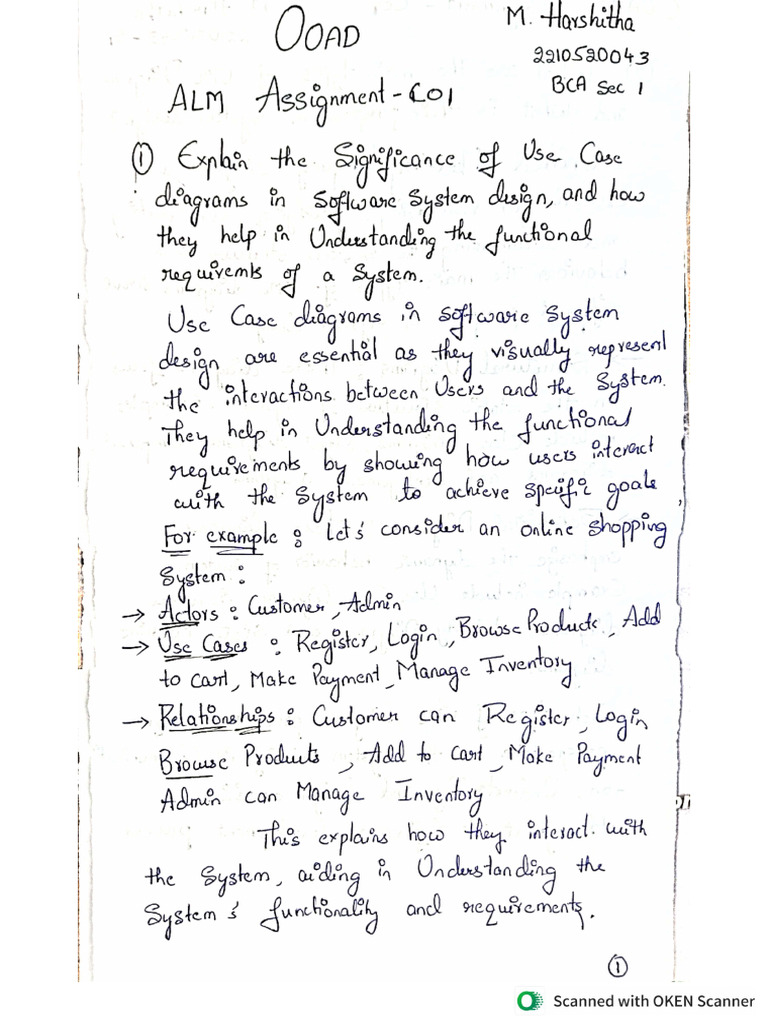 OOAD
M. Harshitha
2210520043
BCA Sec 1
ALM Assignment - CO1
① Explain the Significance of Use Case
diagrams in Software System design, and how
they help in Understanding the functional
requirements of a System.
Use Case diagrams in Software System
design are essential as they visually represent
the interactions between Users and the System.
They help in Understanding the functional
requirements by showing how users interact
with the System to achieve specific goals
For example : Let's consider an online shopping
System :
→ Actors : Customer, Admin
→ Use Cases : Register, Login, Browse Products, Add
to Cart, Make Payment, Manage Inventory
→ Relationships : Customer can Register, Login
Browse Products, Add to Cart, Make Payment
Admin can Manage Inventory
This explains how they interact with
the System, aiding in Understanding the
System's functionality and requirements.
①
Scanned with OKEN Scanner